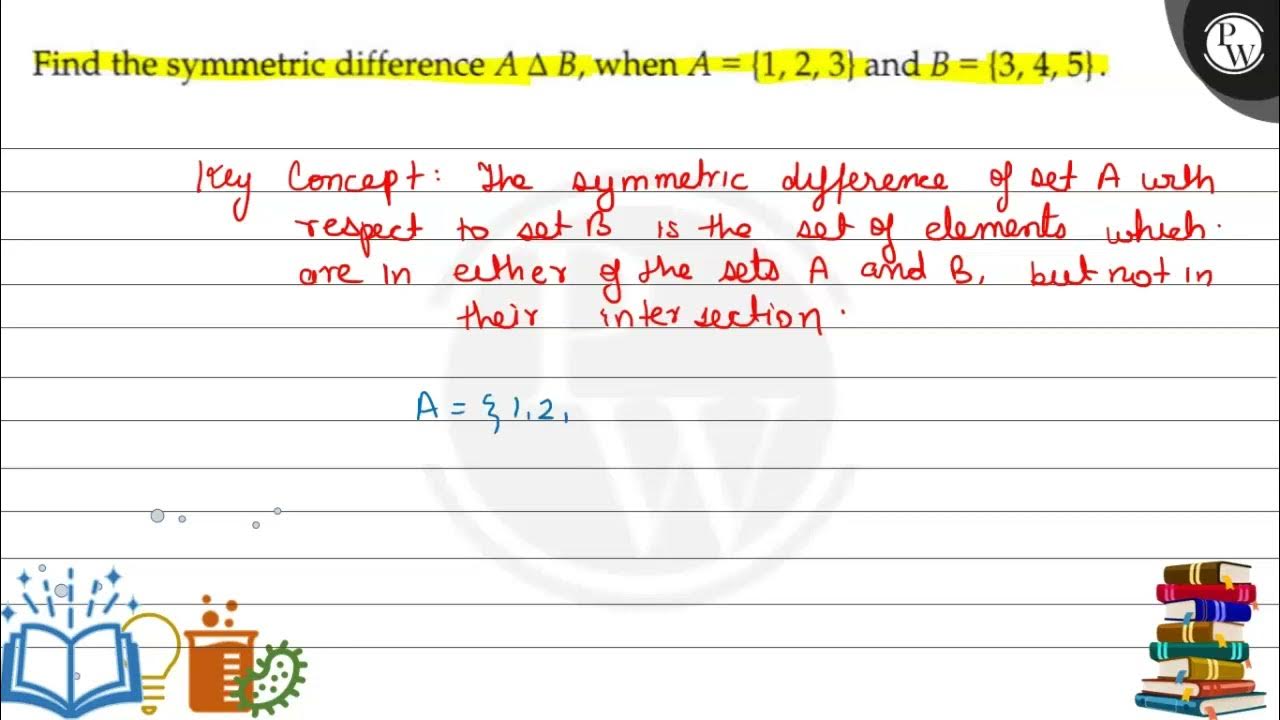 Find the symmetric difference A Δ B, when A = {1, 2, 3} and B = {3, 4, 5}.
PW
Key Concept: The symmetric difference of set A with
respect to set B is the set of elements which
are in either of the sets A and B, but not in
their intersection.
A = { 1, 2,